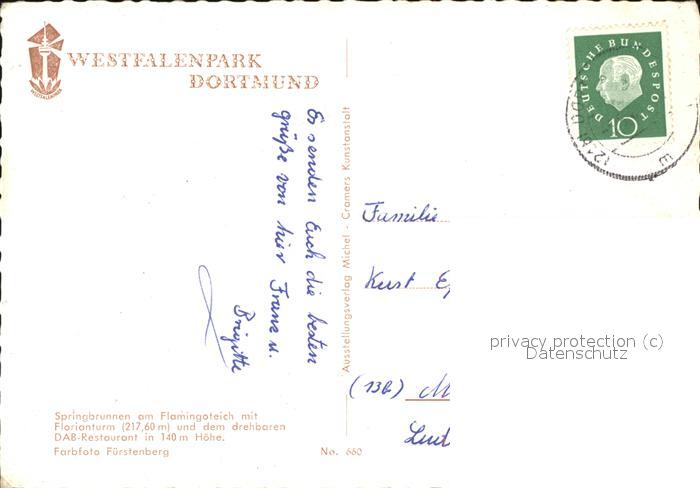 WESTFALENPARK
DORTMUND
WESTFALENPARK
DEUTSCHE BUNDESPOST
10
Es senden Euch die besten
grüße von hier Franz u.
Brigitte
Ausstellungsverlag Michel - Cramers Kunstanstalt
Familie
Kurt
(13b) M
privacy protection (c)
Datenschutz
Springbrunnen am Flamingoteich mit
Florianturm (217,60 m) und dem drehbaren
DAB-Restaurant in 140 m Höhe.
Farbfoto Fürstenberg
No. 660